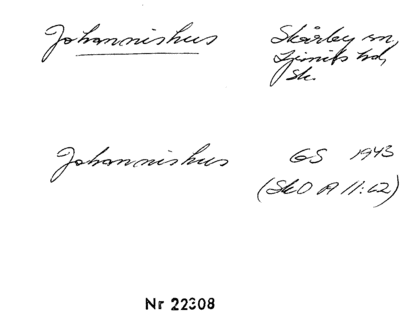 Johannishus Skårby sn,
Ljunits hd,
Sk.
Johannishus GS 1943
(SkO A 11:62)
Nr 22308